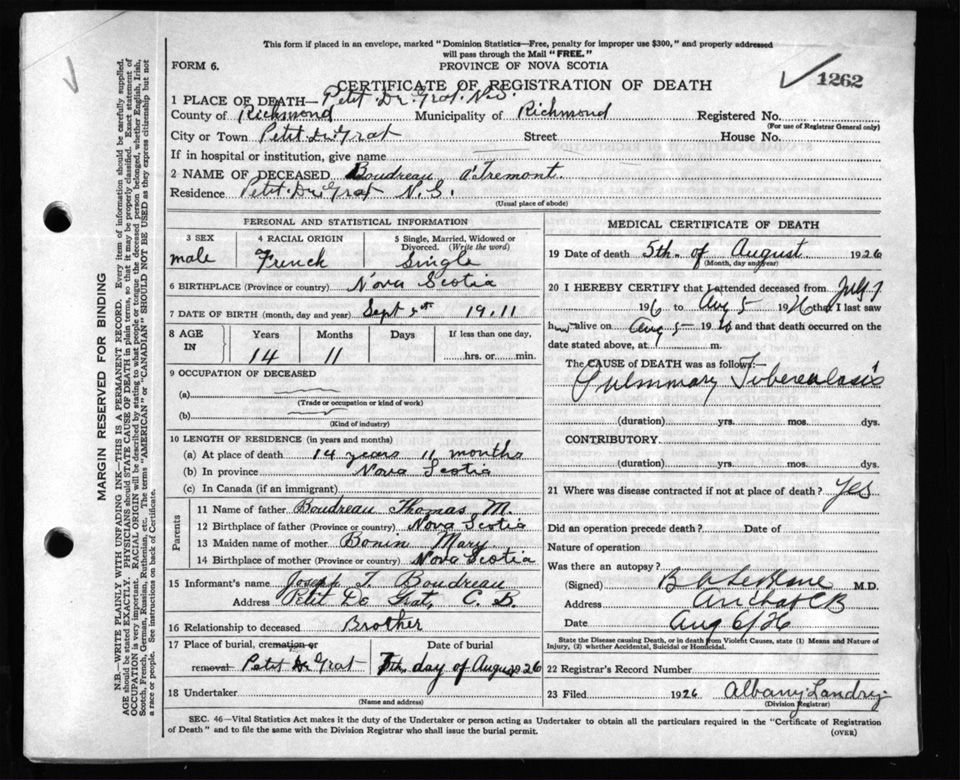 This form if placed in an envelope, marked "Dominion Statistics—Free, penalty for improper use $300," and properly addressed
will pass through the Mail "FREE."
FORM 6.
PROVINCE OF NOVA SCOTIA
1262
CERTIFICATE OF REGISTRATION OF DEATH
1 PLACE OF DEATH— Petit De Grat. N.S.
County of Richmond Municipality of Richmond Registered No.
(For use of Registrar General only)
City or Town Petit De Grat Street House No.
If in hospital or institution, give name
2 NAME OF DECEASED Boudreau a'Tremont.
Residence Petit De Grat N.S.
(Usual place of abode)
PERSONAL AND STATISTICAL INFORMATION
3 SEX 4 RACIAL ORIGIN 5 Single, Married, Widowed or
Divorced. (Write the word)
male French Single
6 BIRTHPLACE (Province or country) Nova Scotia
7 DATE OF BIRTH (month, day and year) Sept 1911
8 AGE IN Years Months Days If less than one day,
14 11 hrs. or min.
9 OCCUPATION OF DECEASED
(a)
(Trade or occupation or kind of work)
(b)
(Kind of industry)
10 LENGTH OF RESIDENCE (in years and months)
(a) At place of death 14 years 11 months
(b) In province Nova Scotia
(c) In Canada (if an immigrant)
Parents
11 Name of father Boudreau Thomas M.
12 Birthplace of father (Province or country) Nova Scotia
13 Maiden name of mother Bonin Mary
14 Birthplace of mother (Province or country) Nova Scotia
15 Informant's name Joseph T. Boudreau
Address Petit De Grat, C. B.
16 Relationship to deceased Brother
17 Place of burial, cremation or Date of burial
removal Petit De Grat 7th day of August 1926
18 Undertaker
(Name and address)
MEDICAL CERTIFICATE OF DEATH
19 Date of death 5th of August 1926
(Month, day and year)
20 I HEREBY CERTIFY that I attended deceased from July 7
1926 to Aug 5 1926 that I last saw
him alive on Aug 5 1926 and that death occurred on the
date stated above, at m.
The CAUSE OF DEATH was as follows:
Pulmonary Tuberculosis
(duration) yrs. mos. dys.
CONTRIBUTORY
(duration) yrs. mos. dys.
21 Where was disease contracted if not at place of death? Yes
Did an operation precede death? Date of
Nature of operation
Was there an autopsy?
(Signed) M.D.
Address Arichat CB
Date Aug 6/26
State the Disease causing Death, or in death from Violent Causes, state (1) Means and Nature of
Injury, (2) whether Accidental, Suicidal or Homicidal.
22 Registrar's Record Number
23 Filed 1926 Albany Landry
(Division Registrar)
SEC. 46—Vital Statistics Act makes it the duty of the Undertaker or person acting as Undertaker to obtain all the particulars required in the "Certificate of Registration
of Death" and to file the same with the Division Registrar who shall issue the burial permit.
(OVER)
MARGIN RESERVED FOR BINDING
N.B.—WRITE PLAINLY WITH UNFADING INK—THIS IS A PERMANENT RECORD. Every item of information should be carefully supplied.
AGE should be stated EXACTLY. PHYSICIANS should STATE CAUSE OF DEATH in plain terms, so that it may be properly classified. Exact statement of
OCCUPATION is very important. RACIAL ORIGIN will be described by stating to what people or tongue the deceased person belonged, whether English, Irish,
Scotch, French, German, Russian, Ruthenian, etc. The terms "AMERICAN" or "CANADIAN" SHOULD NOT BE USED as they express citizenship but not
a race or people. See instructions on back of Certificate.